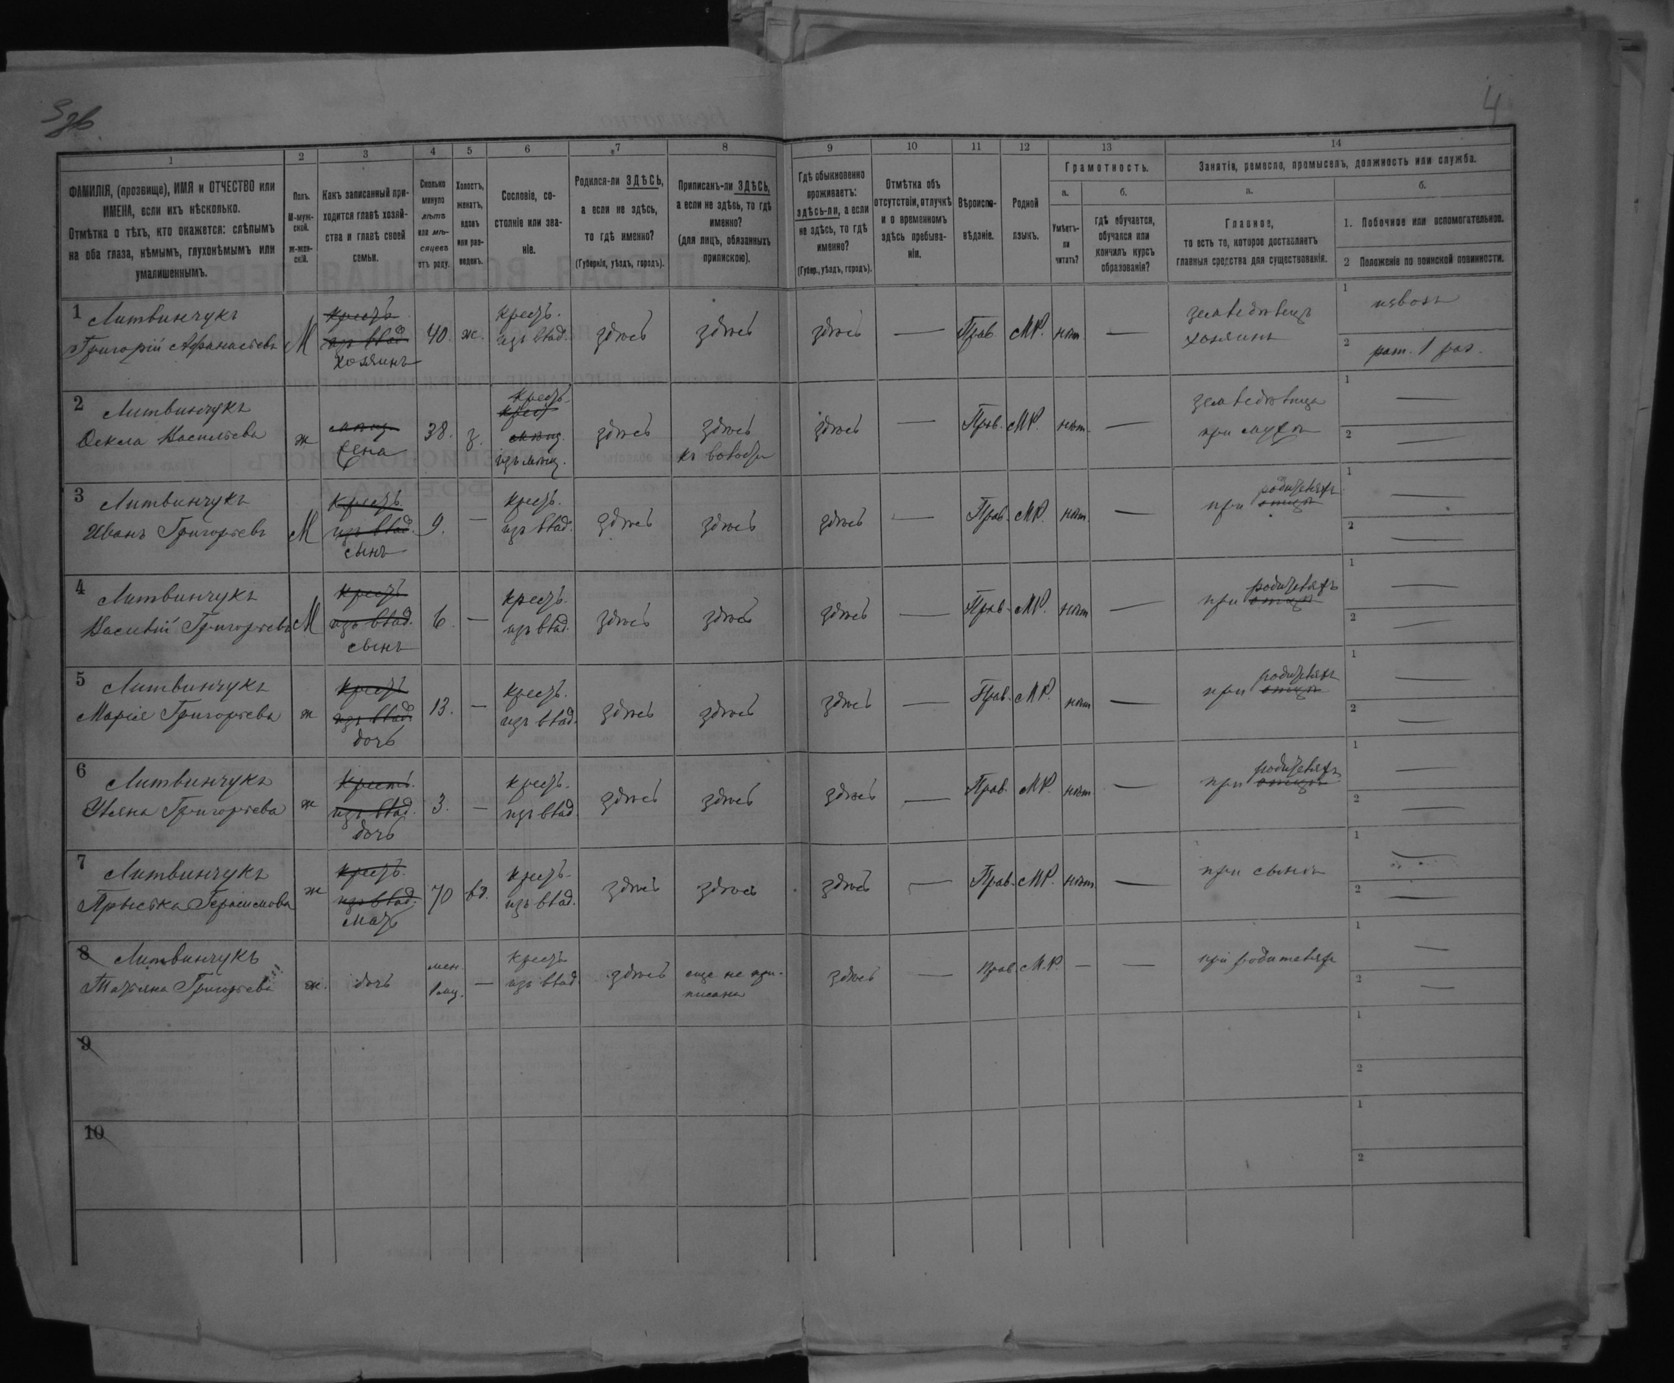 4
1
2
3
4
5
6
7
8
9
10
11
12
13
14
ФАМИЛІЯ, (прозвище), ИМЯ и ОТЧЕСТВО или
ИМЕНА, если ихъ нѣсколько.
Отмѣтка о тѣхъ, кто окажется: слѣпымъ
на оба глаза, нѣмымъ, глухонѣмымъ или
умалишеннымъ.
Полъ.
М-муж-
ской.
ж-жен-
скій.
Какъ записанный при-
ходится главѣ хозяй-
ства и главѣ своей
семьи.
Сколько
минуло
лѣтъ
или мѣ-
сяцевъ
отъ роду.
Холостъ,
женатъ,
вдовъ
или раз-
веденъ.
Сословіе, со-
стояніе или зва-
ніе.
Родился-ли ЗДѢСЬ,
а если не здѣсь,
то гдѣ именно?
(Губернія, уѣздъ, городъ).
Приписанъ-ли ЗДѢСЬ,
а если не здѣсь, то гдѣ
именно?
(для лицъ, обязанныхъ
припискою).
Гдѣ обыкновенно
проживаетъ:
здѣсь-ли, а если
не здѣсь, то гдѣ
именно?
(Губер., уѣздъ, городъ).
Отмѣтка объ
отсутствіи, отлучкѣ
и о временномъ
здѣсь пребыва-
ніи.
Вѣроиспо-
вѣданіе.
Родной
языкъ.
Грамотность.
а.
Умѣетъ-
ли
читать?
б.
гдѣ обучается,
обучался или
кончилъ курсъ
образованія?
Занятія, ремесло, промыселъ, должность или служба.
а.
Главное,
то есть то, которое доставляетъ
главныя средства для существованія.
б.
1. Побочное или вспомогательное.
2 Положеніе по воинской повинности.
1 Литвинчукъ
Григорій Афанасьевъ
М
крестъ.
изъ влад.
хозяинъ
40.
ж.
крест.
изъ влад.
здѣсь
здѣсь
здѣсь
—
Прав
МР.
нѣт
—
хозяинъ
1
2 рат. 1 раз.
2 Литвинчукъ
Васильева
ж
жена
38.
з.
крест.
здѣсь
здѣсь
здѣсь
—
Прав.
МР.
нѣт.
—
при мужѣ
1 —
2 —
3 Литвинчукъ
Иванъ Григорьевъ
М
крестъ
изъ влад.
сынъ
9.
—
крест.
изъ влад.
здѣсь
здѣсь
здѣсь
—
Прав.
МР.
нѣт
—
при отцѣ родителяхъ
1 —
2 —
4 Литвинчукъ
Василій Григорьевъ
М
крестъ
изъ влад.
сынъ
6.
—
крест.
изъ влад.
здѣсь
здѣсь
здѣсь
—
Прав.
МР.
нѣт
—
при отцѣ родителяхъ
1 —
2 —
5 Литвинчукъ
Марія Григорьева
ж
крестъ
изъ влад.
дочь
13.
—
крест.
изъ влад.
здѣсь
здѣсь
здѣсь
—
Прав.
МР.
нѣт
—
при отцѣ родителяхъ
1 —
2 —
6 Литвинчукъ
Ульяна Григорьева
ж
крестъ
изъ влад.
дочь
3.
—
крест.
изъ влад.
здѣсь
здѣсь
здѣсь
—
Прав
МР
нѣт
—
при отцѣ родителяхъ
1 —
2 —
7 Литвинчукъ
Герасимова
ж
крестъ.
изъ влад.
мать
70
вд.
крест.
изъ влад.
здѣсь
здѣсь
здѣсь
—
Прав.
МР.
нѣт
—
при сынѣ
1 —
2 —
8 Литвинчукъ
Татьяна Григорьева
ж.
дочь
мен.
1 мѣс.
—
крест.
изъ влад.
здѣсь
еще не при-
писана
здѣсь
—
прав.
М.Р.
—
—
при родителях
1 —
2 —
9
1
2
10
1
2